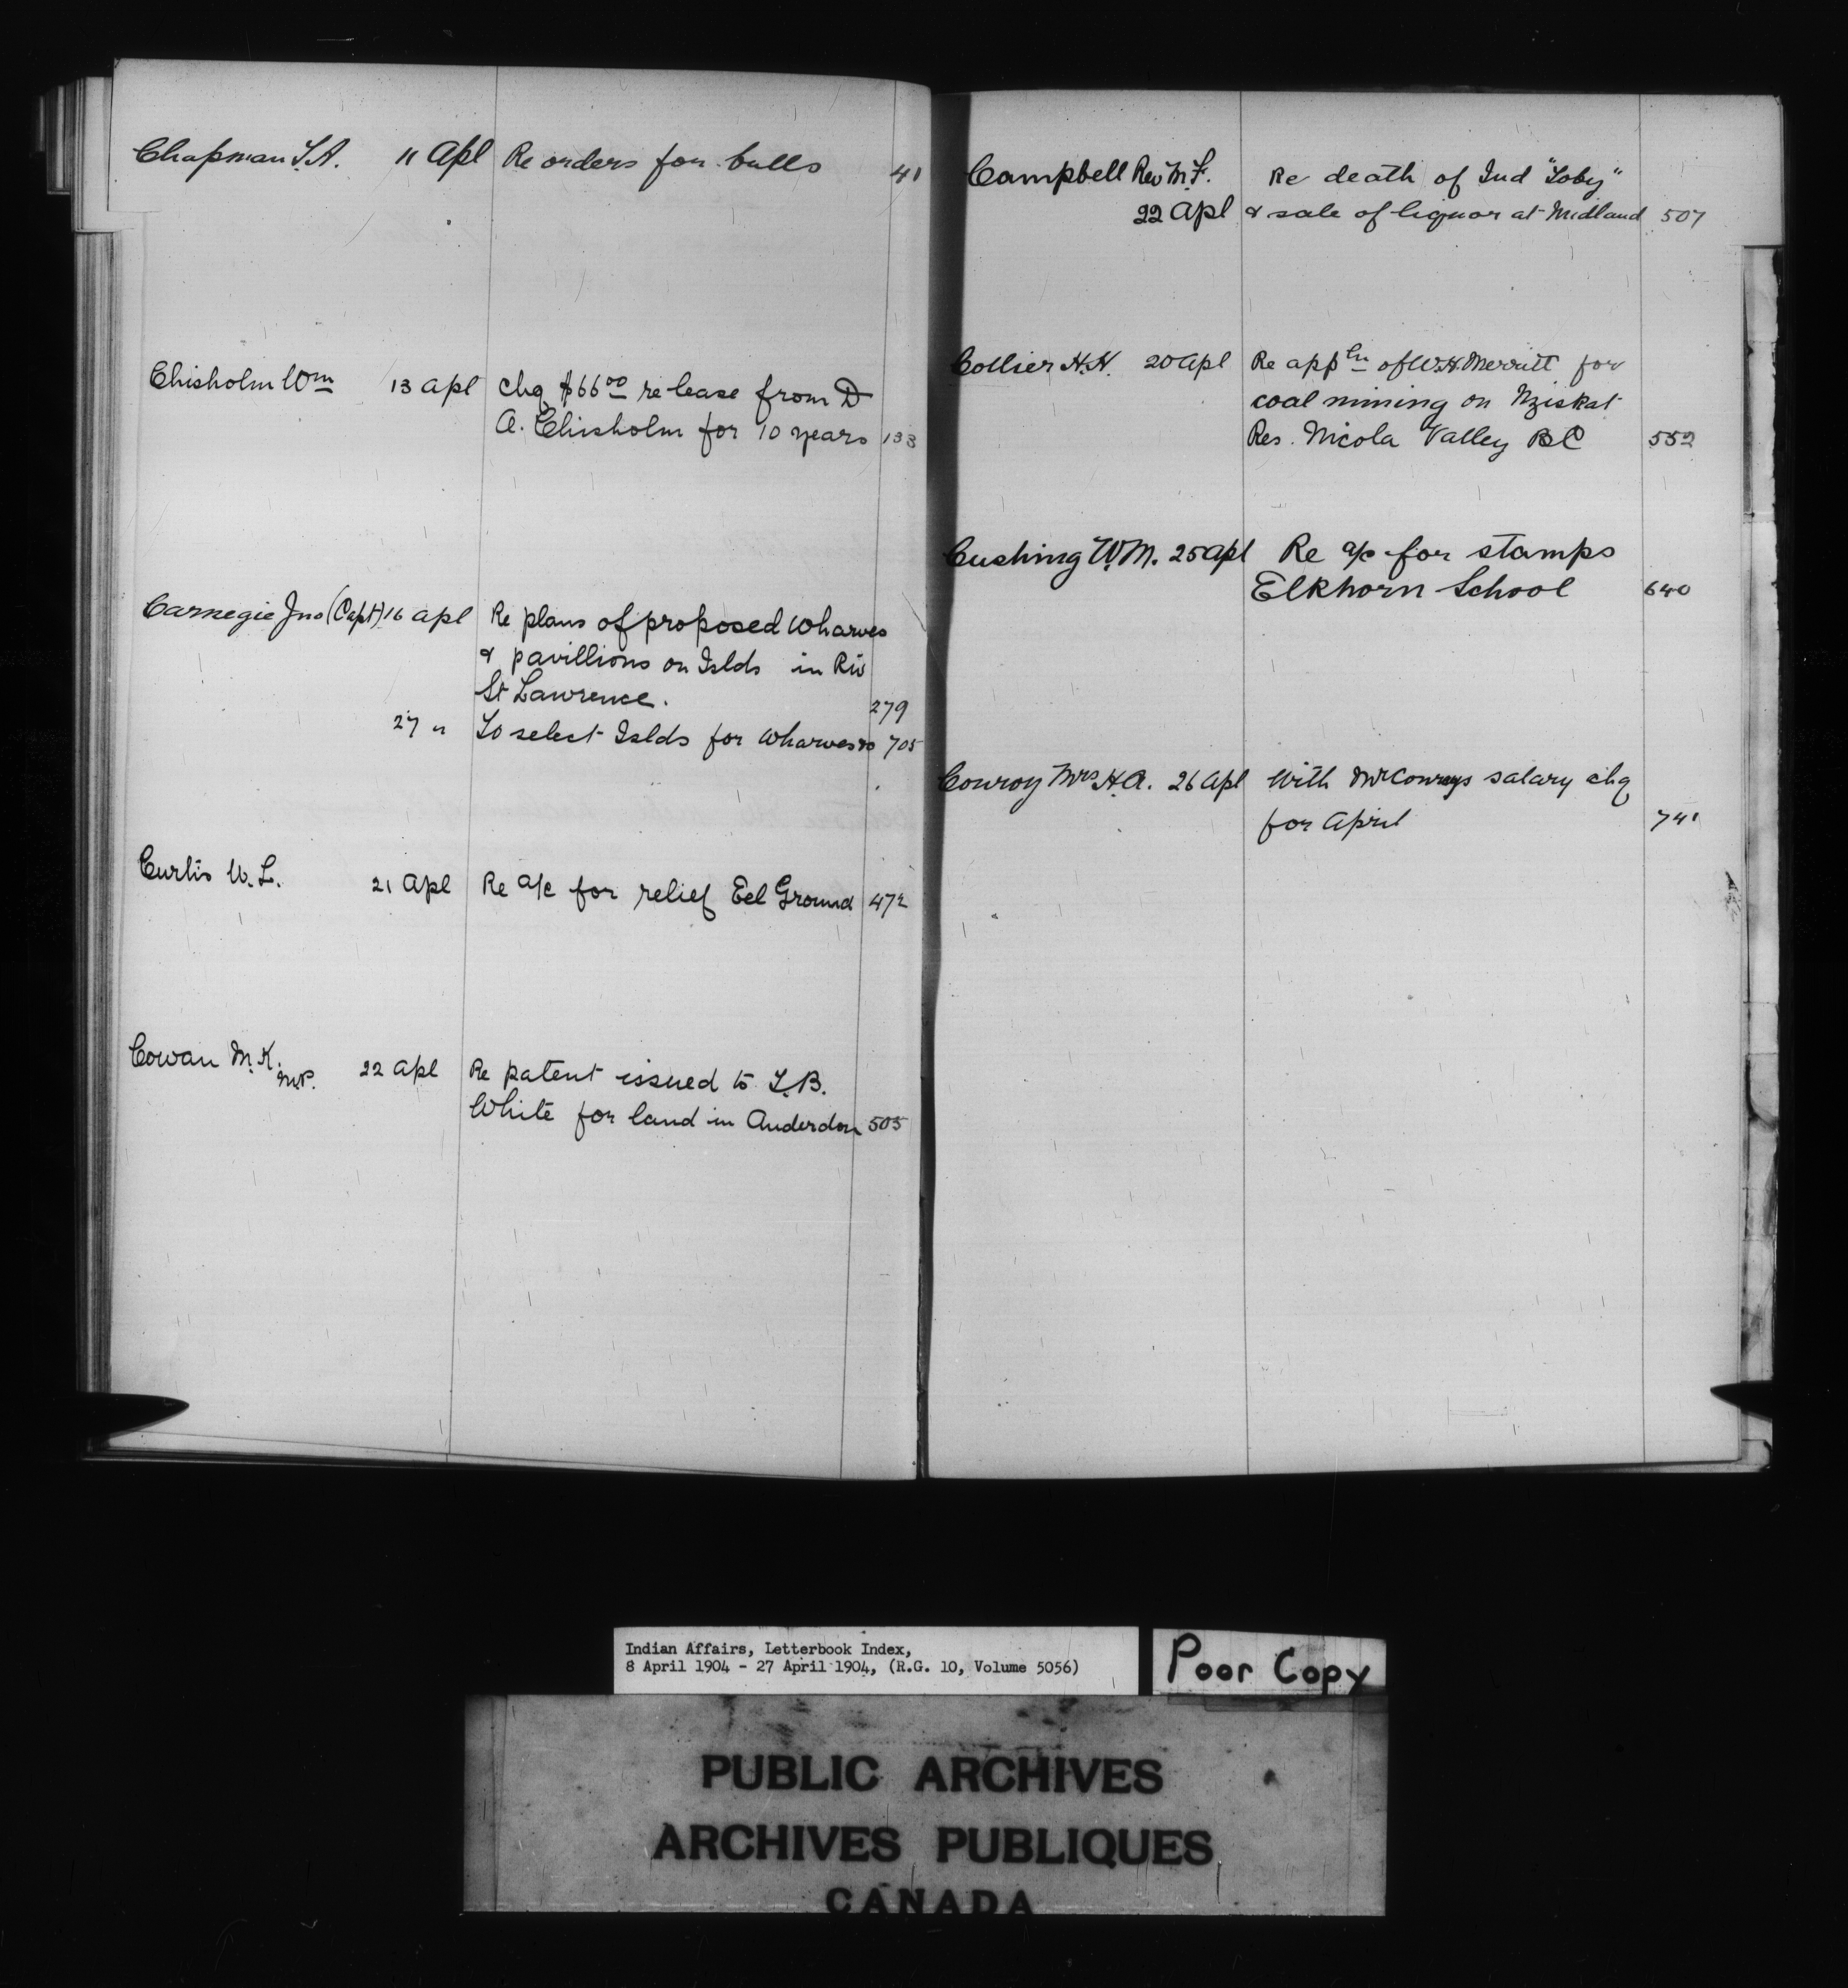 Chapman T.A. 11 Apl Re orders for bulls 41
Chisholm Wm 13 Apl Chq $66 00 re lease from D
A. Chisholm for 10 years 133
Carnegie Jno (Capt) 16 Apl Re plans of proposed wharves
& pavillions on Islds in Riv
St Lawrence. 279
27 " To select Islds for wharves 705
Curtis W. L. 21 Apl Re a/c for relief Eel Ground 472
Cowan M. K. 22 Apl Re patent issued to T.B.
M.P.
White for land in Anderdon 505
Campbell Rev M.F. Re death of Ind "Toby"
22 Apl & sale of liquor at Midland 507
Collier H.H. 20 Apl Re appln of W.H. Merritt for
coal mining on Nziskat
Res. Nicola Valley BC 552
Cushing W.M. 25 Apl Re a/c for stamps
Elkhorn School 640
Conroy Mrs H.A. 26 Apl With Mr Conroys salary chq
for April 741
Indian Affairs, Letterbook Index,
8 April 1904 - 27 April 1904, (R.G. 10, Volume 5056)
Poor Copy
PUBLIC ARCHIVES
ARCHIVES PUBLIQUES
CANADA